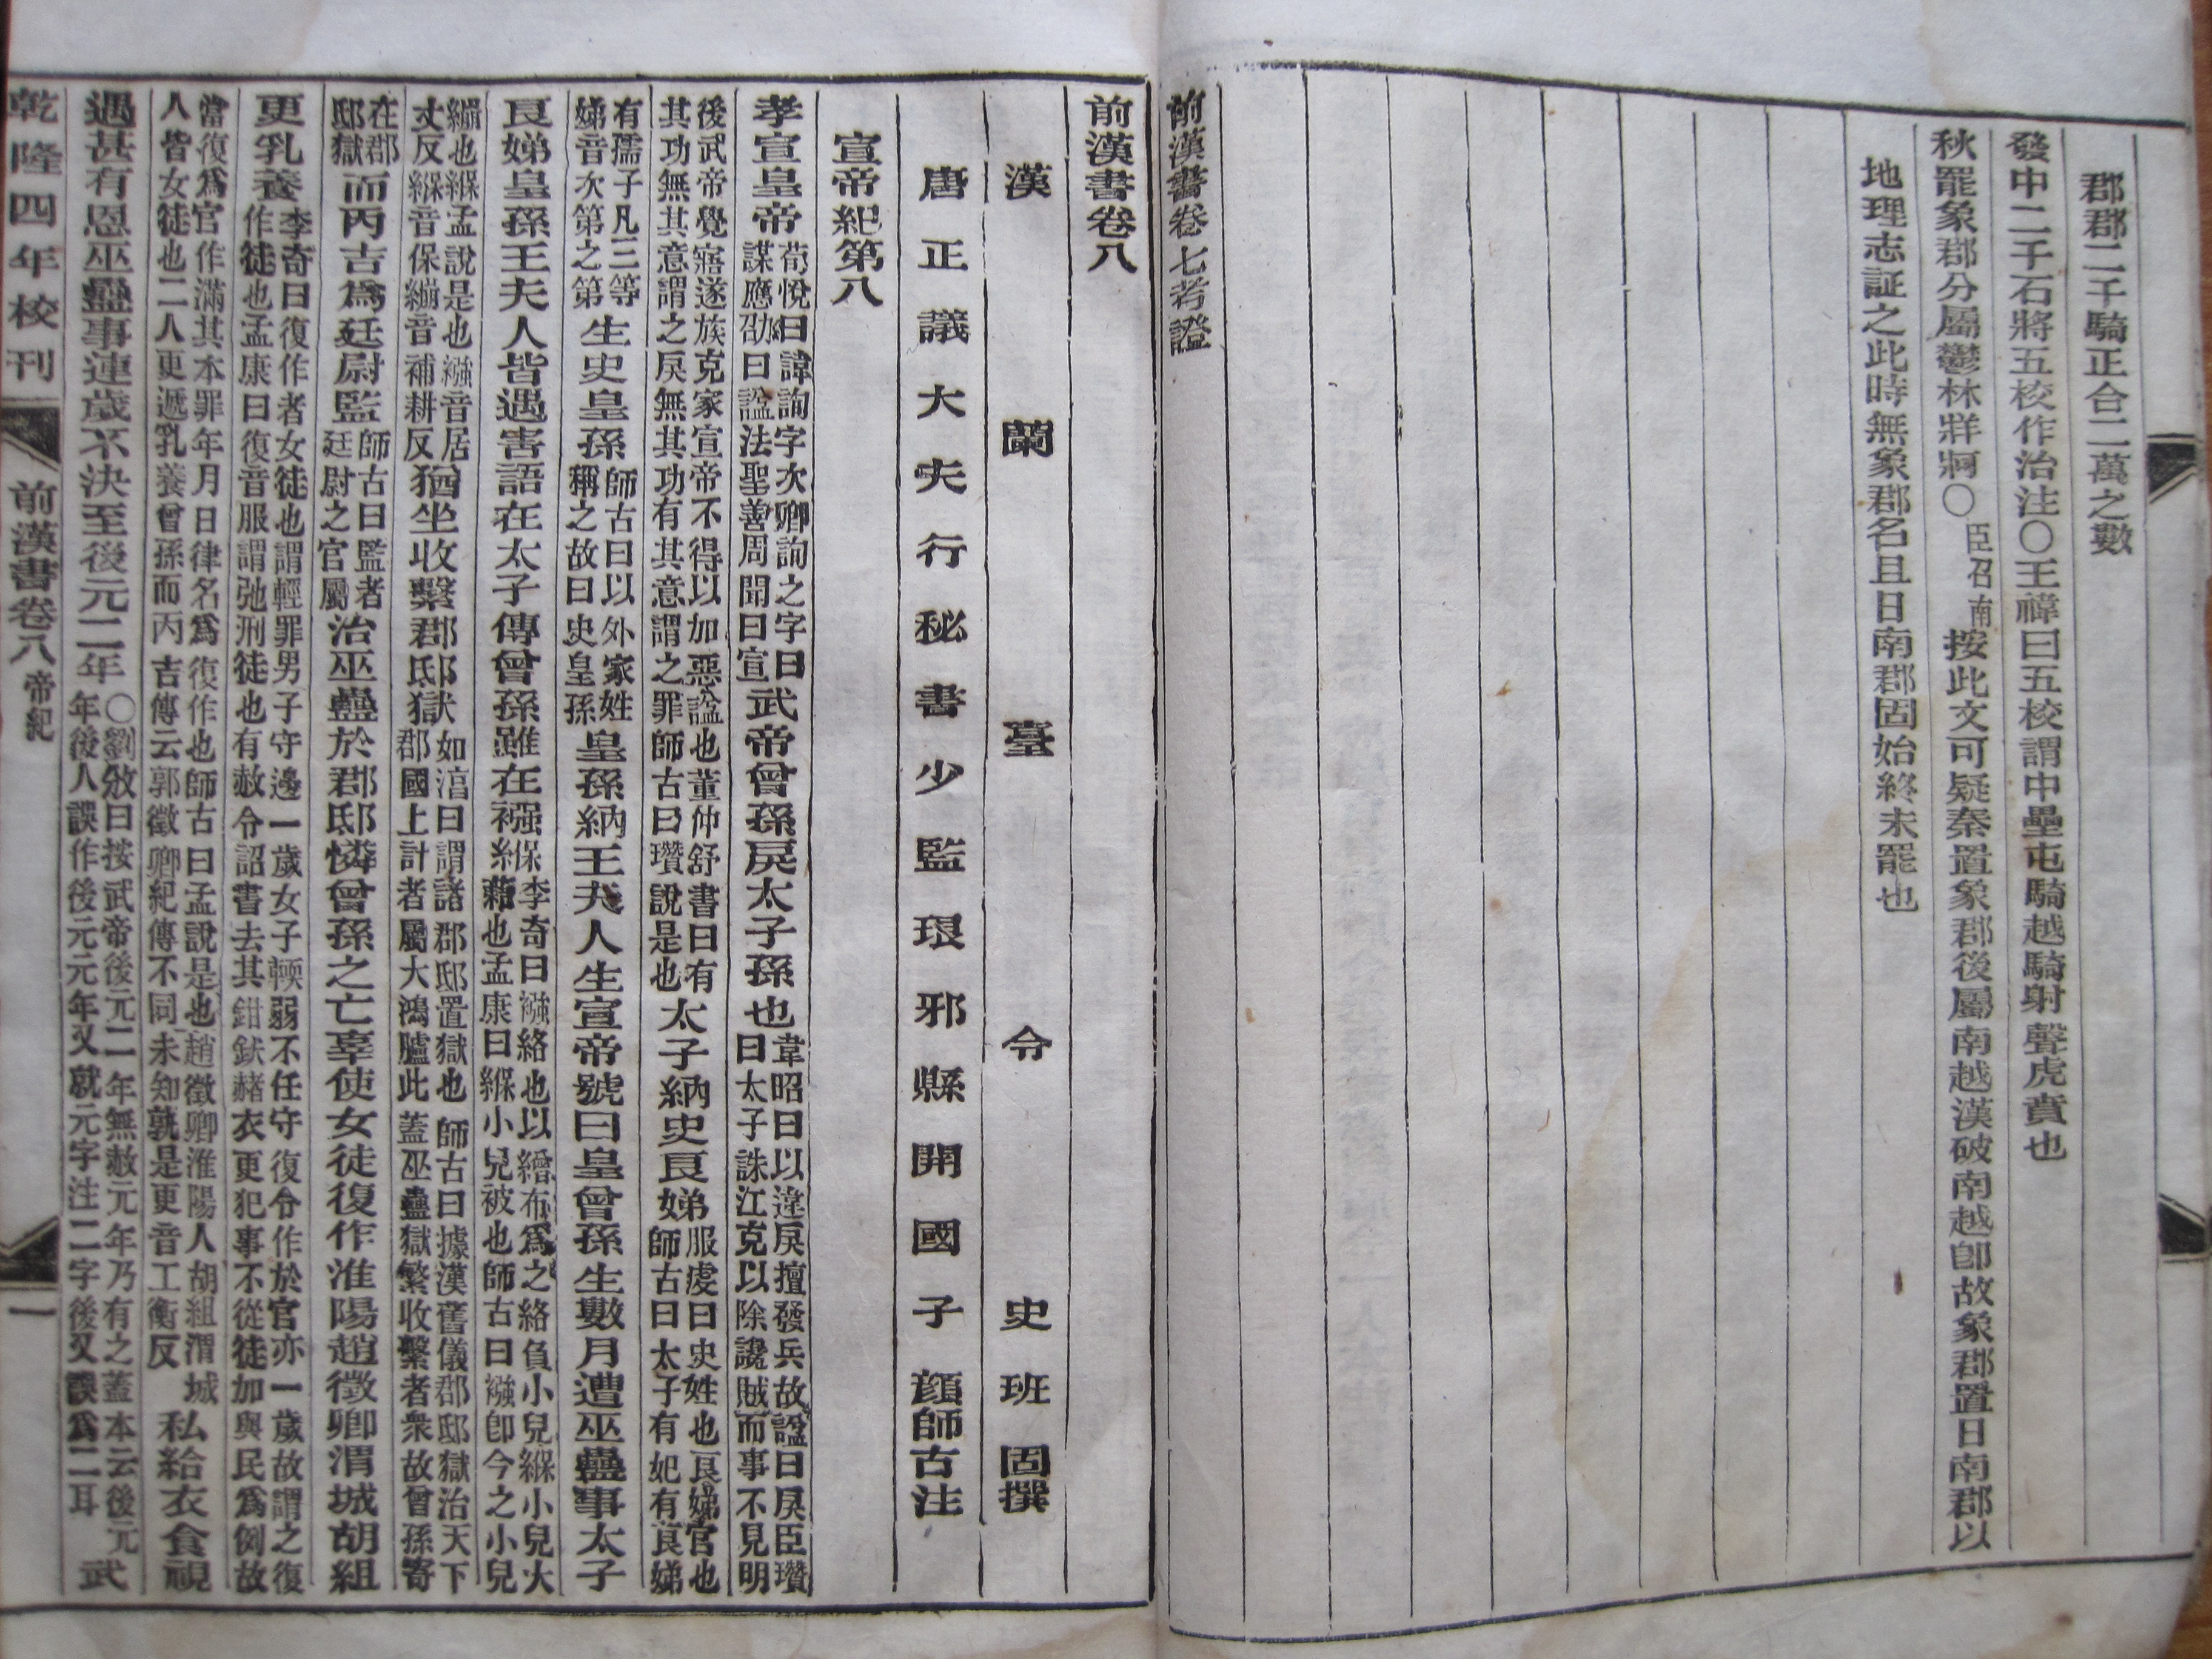 郡郡二千騎正合二萬之數
發中二千石將五校作治注○王禕曰五校謂中壘屯騎越騎射聲虎賁也
秋罷象郡分屬鬱林牂牁○臣召南按此文可疑秦置象郡後屬南越漢破南越卽故象郡置日南郡以
地理志証之此時無象郡名且日南郡固始終未罷也
前漢書卷七考證
前漢書卷八
漢蘭臺令史班固撰
唐正議大夫行秘書少監琅邪縣開國子顏師古注
宣帝紀第八
孝宣皇帝荀悅曰諱詢字次卿詢之字曰謀應劭曰諡法聖善周聞曰宣武帝曾孫戾太子孫也韋昭曰以違戾擅發兵故諡曰戾臣瓚曰太子誅江充以除讒賊而事不見明
後武帝覺寤遂族充家宣帝不得以加惡諡也董仲舒書曰有其功無其意謂之戾無其功有其意謂之罪師古曰瓚說是也太子納史良娣服虔曰史姓也良娣官也師古曰太子有妃有良娣
有孺子凡三等娣音次第之第生史皇孫師古曰以外家姓稱之故曰史皇孫皇孫納王夫人生宣帝號曰皇曾孫生數月遭巫蠱事太子
良娣皇孫王夫人皆遇害語在太子傳曾孫雖在襁緥李奇曰襁絡也以繒布爲之絡負小兒緥小兒大藉也孟康曰緥小兒被也師古曰襁卽今之小兒
繃也緥孟說是也襁音居丈反緥音保繃音補耕反猶坐收繫郡邸獄如淳曰謂諸郡邸置獄也師古曰據漢舊儀郡邸獄治天下郡國上計者屬大鴻臚此蓋巫蠱獄繁收繫者衆故曾孫寄
在郡邸獄而丙吉爲廷尉監師古曰監者廷尉之官屬治巫蠱於郡邸憐曾孫之亡辜使女徒復作淮陽趙徵卿渭城胡組
更乳養李奇曰復作者女徒也謂輕罪男子守邊一歲女子輭弱不任守復令作於官亦一歲故謂之復作徒也孟康曰復音服謂弛刑徒也有赦令詔書去其鉗釱赭衣更犯事不從徒加與民爲例故
當復爲官作滿其本罪年月日律名爲復作也師古曰孟說是也趙徵卿淮陽人胡組渭城人皆女徒也二人更遞乳養曾孫而丙吉傳云郭徵卿紀傳不同未知孰是更音工衡反私給衣食視
遇甚有恩巫蠱事連歲不決至後元二年○劉攽曰按武帝後元二年無赦元年乃有之蓋本云後元年後人誤作後元元年又就元字注二字後又誤爲二耳武
乾隆四年校刊
前漢書卷八帝紀
一